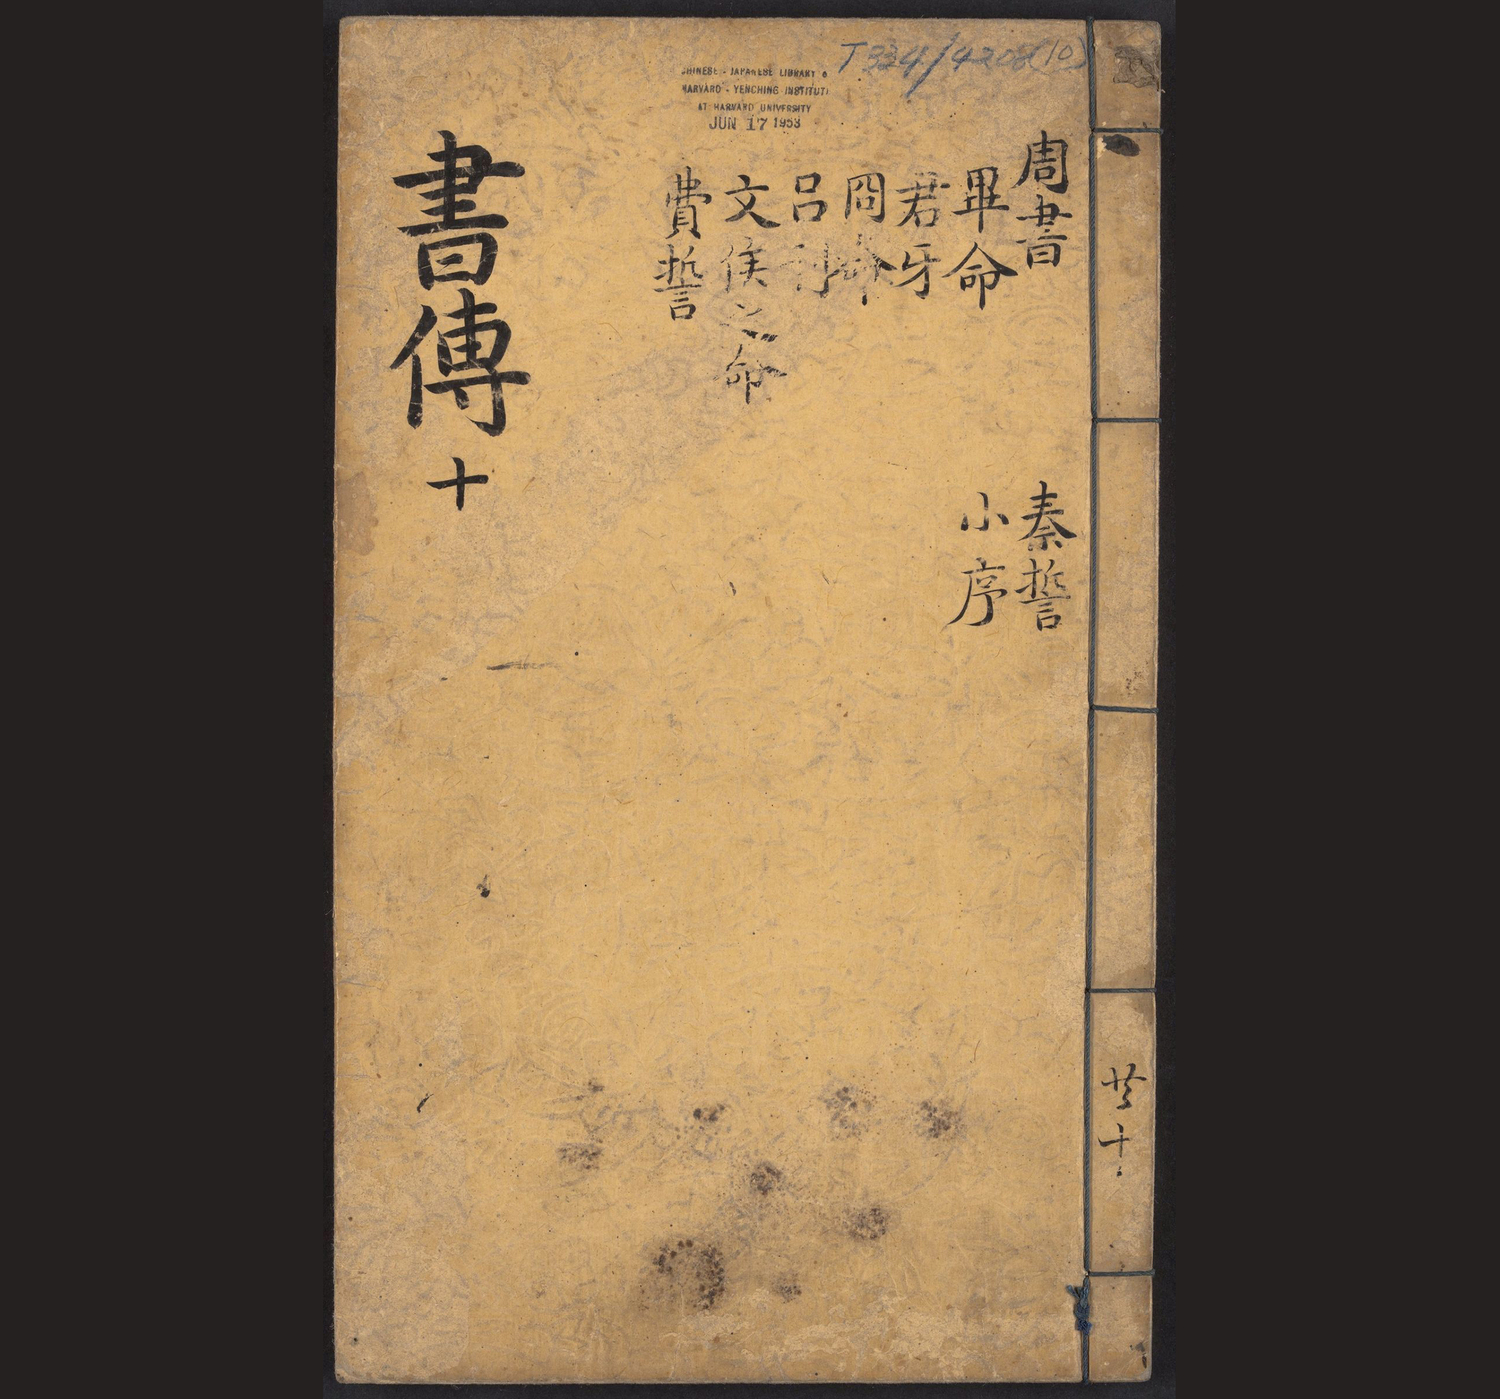 T334/4208(10)
CHINESE - JAPANESE LIBRARY
HARVARD - YENCHING INSTITUTE
AT HARVARD UNIVERSITY
JUN 17 1953
周書
畢命
君牙
冏命
呂刑
文侯之命
費誓
秦誓
小序
書傳 十
共十